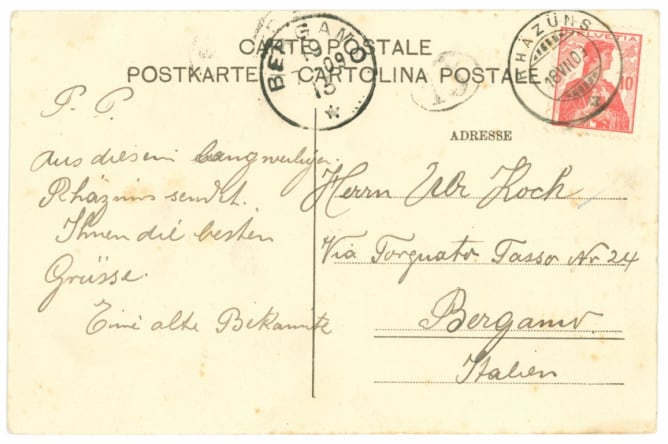 CARTE POSTALE
POSTKARTE CARTOLINA POSTALE
BERGAMO
19
09
15
RHÄZÜNS
18 VII 09
HELVETIA
10
P. P.
Aus diesem langweiligen
Rhäzüns sendet
Ihnen die besten
Grüsse.
Eine alte Bekannte
ADRESSE
Herrn Ulr Koch
Via Torquato Tasso Nr 24
Bergamo.
Italien